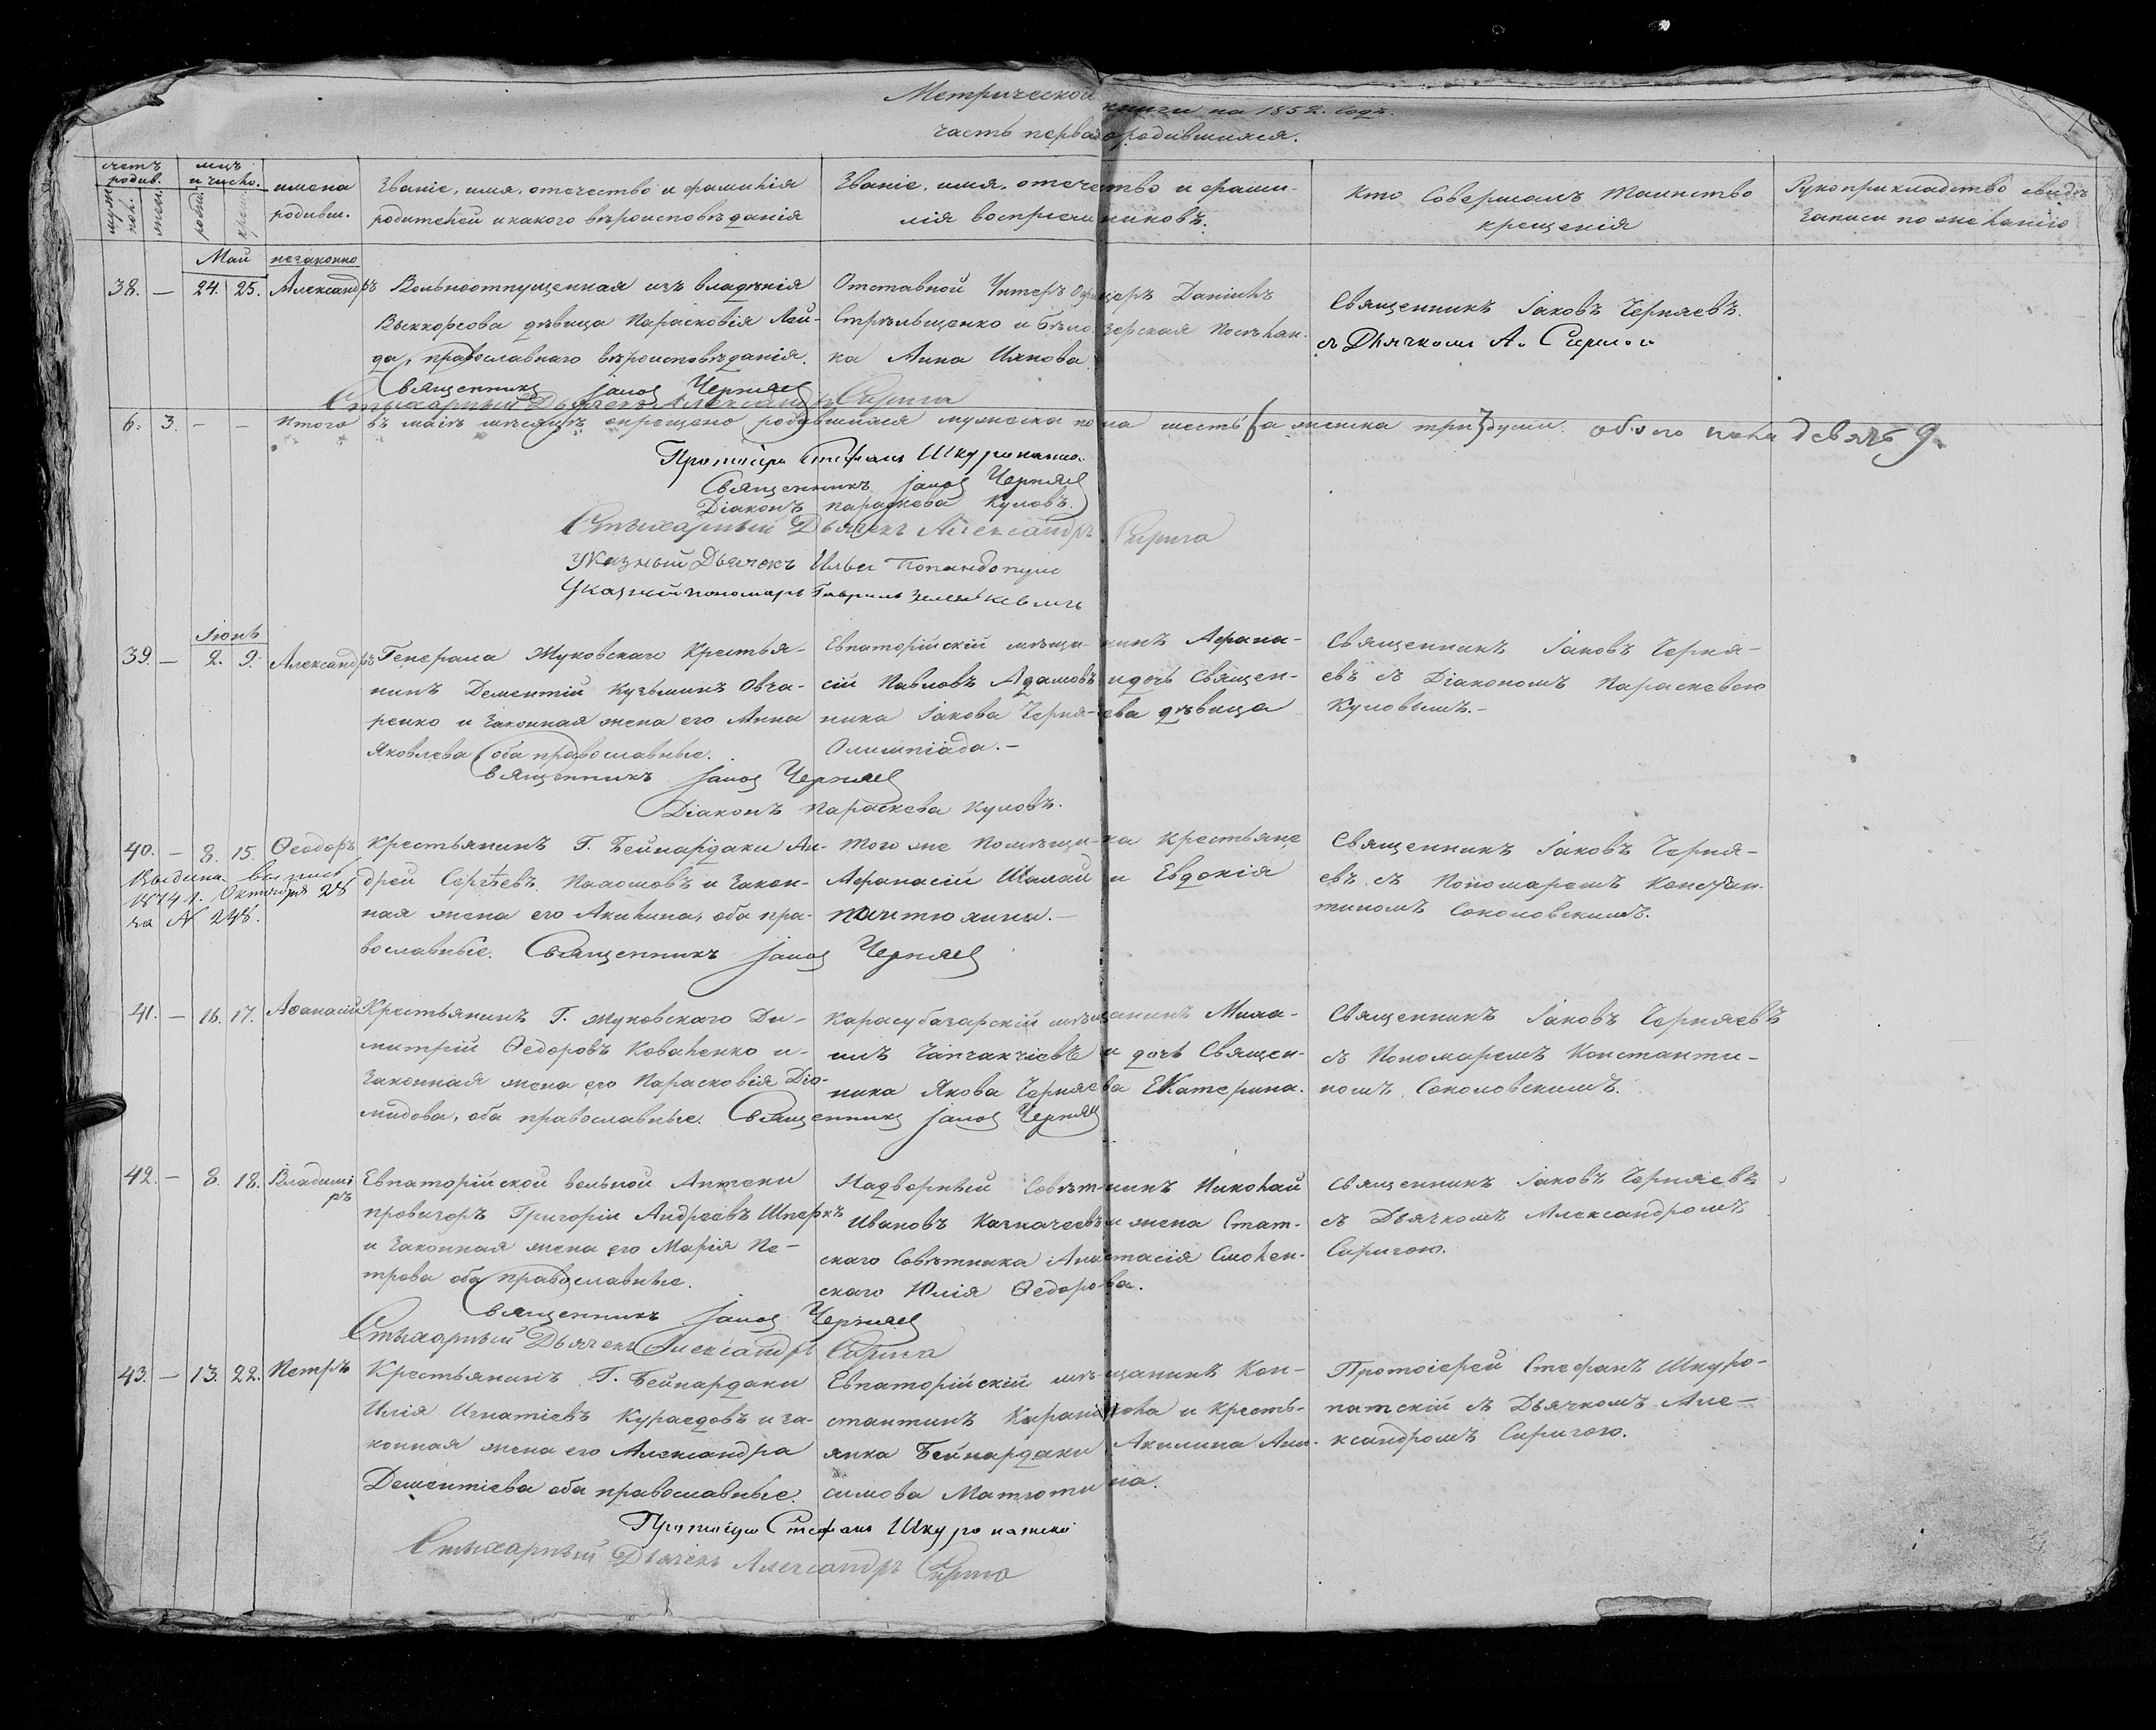 Метрической книги на 1852. годъ.
часть первая о родившихся.
счетъ родив.
муж. пол.
жен.
мцъ и число.
рожд.
крещ.
имена родивш.
Званіе, имя, отечество и фамилія
родителей и какого вѣроисповѣданія
Званіе, имя, отечество и фами-
лія воспріемниковъ.
Кто Совершалъ Таинство
крещенія
Рукоприкладство свидѣ
записи по желанію
Май
незаконно
38. — 24. 25. Александръ
Вольноотпущенная изъ владѣнія
дѣвица Парасковія Лей-
да, православнаго вѣроисповѣданія.
Отставной Унтеръ Офицеръ Даніилъ
Стрѣльщенко и бѣлозерская Поселян-
ка Анна
Священникъ Іаковъ Черняевъ.
съ Дьячкомъ А.
Священникъ Іаковъ Черняевъ
Стихарный Дьячекъ Александръ Сирига
6. 3. — — Итого въ маіѣ мѣсяцѣ окрещено родившихся мужеска пола шесть (а женска три) души. обоего пола девять 9.
Протоіерей Стефанъ Шкуропатскій
Священникъ Іаковъ Черняевъ
Діаконъ Параскева Куловъ.
Стихарный Дьячекъ Александръ Сирига
Указный Дьячекъ Илья Попандопуло
Указный пономарь Гавриилъ
Іюнь
39. — 2. 9. Александръ
Генерала Жуковскаго Крестья-
нинъ Дементій Кузьминъ Овча-
ренко и законная жена его Анна
Яковлева оба православные.
Евпаторійскій мѣщанинъ Афана-
сій Павловъ Адамовъ и дочь Священ-
ника Іакова Черняева дѣвица
Олимпіада.—
Священникъ Іаковъ Черня-
евъ съ Діакономъ Параскевою
Куловымъ.—
Священникъ Іаковъ Черняевъ
Діаконъ Параскева Куловъ.
40. — 8. 15. Ѳеодоръ
Крестьянинъ Г. Бейнардаки Ан-
дрей Сергѣевъ и закон-
ная жена его Акилина, оба пра-
вославные. Священникъ Іаковъ Черняевъ
Того же Помѣщика Крестьяне
Афанасій Шалай и Евдокія
Священникъ Іаковъ Черня-
евъ съ Пономаремъ Констан-
тиномъ Соколовскимъ.
Выдана выпись
1874 г. Октября 25
за № 248.
41. — 16. 17. Аѳанасій
Крестьянинъ Г. Жуковскаго Ди-
митрій Ѳедоровъ Коваленко и
законная жена его Парасковія Діо-
мидова, оба православные. Священникъ Іаковъ Черняевъ
Карасубазарскій мѣщанинъ Миха-
илъ и дочь Священ-
ника Якова Черняева Екатерина.
Священникъ Іаковъ Черняевъ
съ Пономаремъ Константи-
номъ Соколовскимъ.
42. — 8. 18. Владиміръ
Евпаторійской вольной Аптеки
провизоръ Григорій Андреевъ
и законная жена его Марія Пе-
трова оба православные.
Надворный Совѣтникъ Николай
Ивановъ Казначеевъ и жена Стат-
скаго Совѣтника Анастасія Смолен-
скаго Юлія Ѳедорова.
Священникъ Іаковъ Черняевъ
съ Дьячкомъ Александромъ
Сиригою.
Священникъ Іаковъ Черняевъ
Стихарный Дьячекъ Александръ Сирига
43. — 13. 22. Петръ
Крестьянинъ Г. Бейнардаки
Илія Игнатіевъ Кураедовъ и за-
конная жена его Александра
Дементіева оба православные.
Евпаторійскій мѣщанинъ Кон-
стантинъ и кресть-
янка Бейнардаки Акилина Ани-
симова Матютина.
Протоіерей Стефанъ Шкуро-
патскій съ Дьячкомъ Але-
ксандромъ Сиригою.
Протоіерей Стефанъ Шкуропатскій
Стихарный Дьячекъ Александръ Сирига